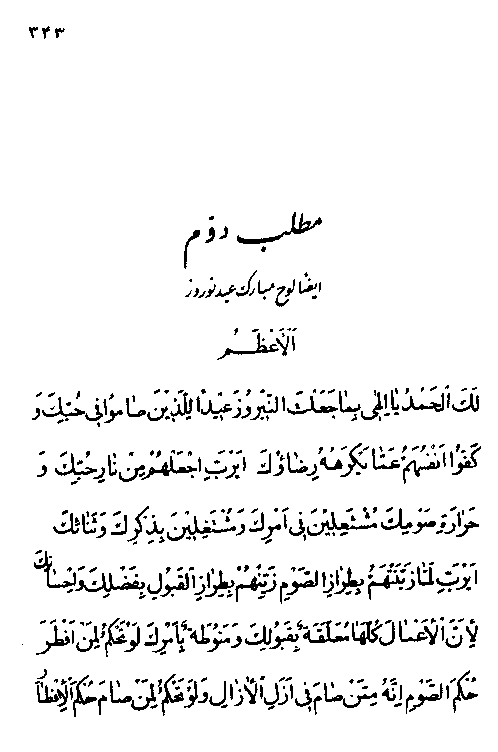 ۳۴۳
مطلب دوّم
ایضا لوح مبارک عید نوروز
اَلْاَعْظَمُ
لَكَ الْحَمْدُ يا اِلهِي بِما جَعَلْتَ النَّيْرُوزَ عِيْدًا لِلَّذِيْنَ صامُوا فِي حُبِّكَ وَ
كَفُّوا اَنْفُسَهُمْ عَمّا يَكْرَهُهُ رِضاؤُكَ اَيْرَبِّ اجْعَلْهُمْ مِنْ نارِ حُبِّكَ وَ
حَرارَةِ صَوْمِكَ مُشْتَعِلِيْنَ فِي اَمْرِكَ وَ مُشْتَغِلِيْنَ بِذِكْرِكَ وَ ثَنائِكَ
اَيْرَبِّ لَمّا زَيَّنْتَهُمْ بِطِرازِ الصَّوْمِ زَيِّنْهُمْ بِطِرازِ الْقَبُولِ بِفَضْلِكَ وَ اِحْسانِكَ
لِاَنَّ الْاَعْمالَ كُلَّها مُعَلَّقَةٌ بِقَبُولِكَ وَ مَنُوطَةٌ بِاَمْرِكَ لَوْ تَحْكُمُ لِمَنْ اَفْطَرَ
حُكْمَ الصَّوْمِ اِنَّهُ مِمَّنْ صامَ فِي اَزَلِ الْاٰزالِ وَ لَوْ تَحْكُمُ لِمَنْ صامَ حُكْمَ الْاِفْطارِ